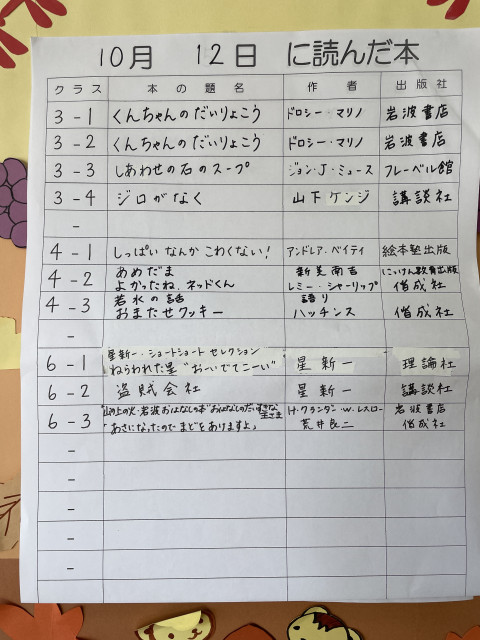 10月 12日 に読んだ本
クラス 本の題名 作者 出版社
3-1 くんちゃんのだいりょこう ドロシー・マリノ 岩波書店
3-2 くんちゃんのだいりょこう ドロシー・マリノ 岩波書店
3-3 しあわせの石のスープ ジョン・J・ミュース フレーベル館
3-4 ジロがなく 山下ケンジ 講談社
-
4-1 しっぱいなんかこわくない! アンドレア・ベイティ 絵本塾出版
4-2 あめだま 新美南吉 にっけん教育出版
よかったね、ネッドくん レミー・シャーリップ 偕成社
4-3 若水の話 語り
おまたせクッキー ハッチンス 偕成社
-
6-1 星新一・ショートショートセレクション
ねらわれた星"おーいでてこーい" 星新一 理論社
6-2 盗賊会社 星新一 講談社
6-3 山の上の火・岩波おはなしの本"おはなしのだいすきな王さま H・クランダー・W・レスロー 岩波書店
「あさになったのでまどをあけますよ」 荒井良二 偕成社
-
-
-
-
-